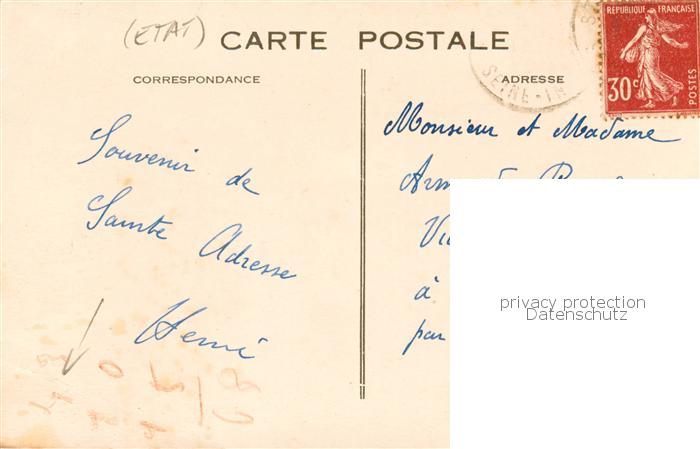 (ETAT)
CARTE POSTALE
CORRESPONDANCE
ADRESSE
SEINE-IN
REPUBLIQUE FRANÇAISE
30c
POSTES
Souvenir de
Sainte Adresse
Henri
Monsieur et Madame
à
par
privacy protection
Datenschutz